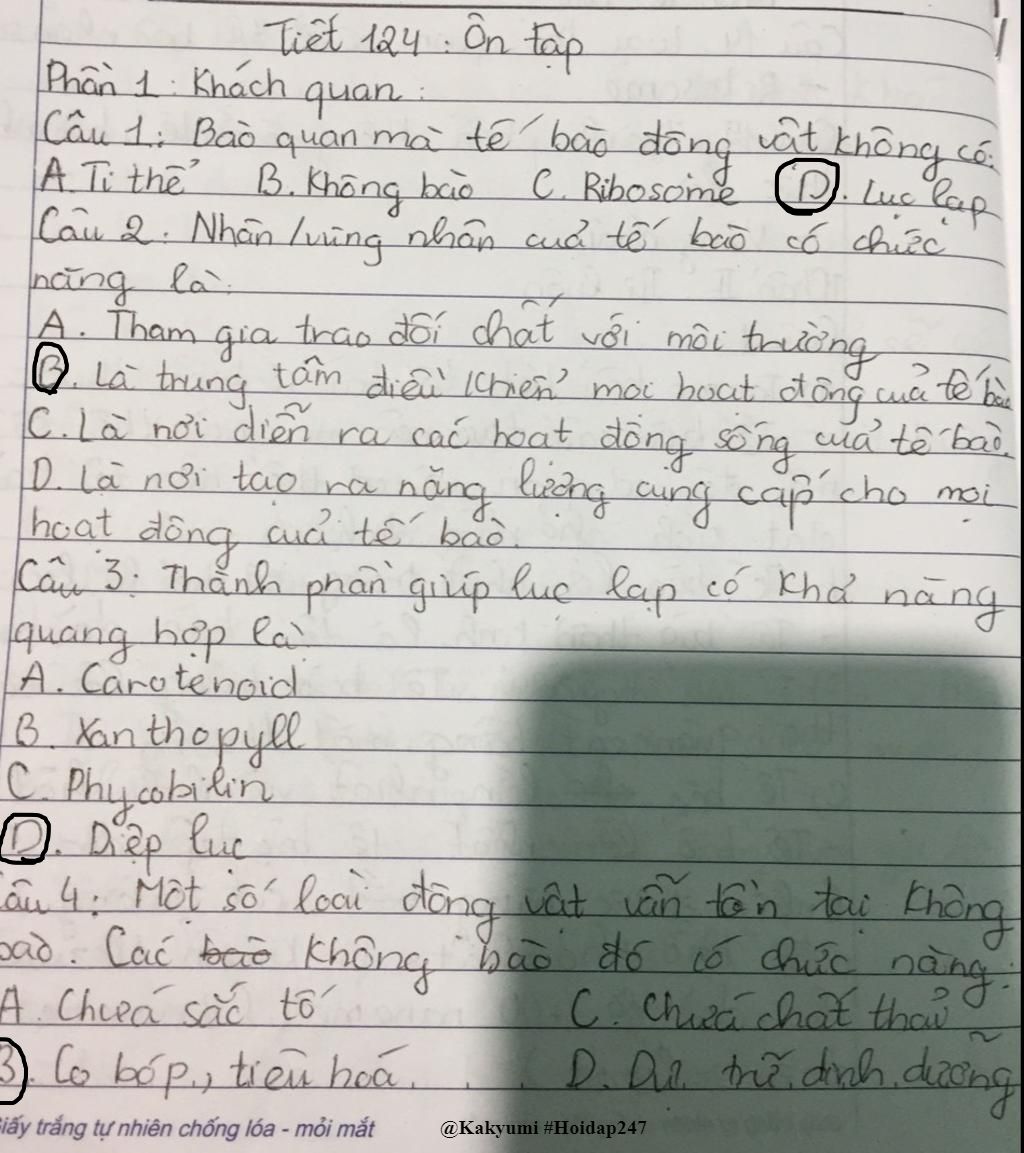 Tiết 124: Ôn tập
Phần 1: Khách quan:
Câu 1: Bào quan mà tế bào động vật không có:
A. Ti thể B. Không bào C. Ribosome D. Lục lạp
Câu 2. Nhân/vùng nhân của tế bào có chức
năng là:
A. Tham gia trao đổi chất với môi trường
B. Là trung tâm điều khiển mọi hoạt động của tế bào
C. Là nơi diễn ra các hoạt động sống của tế bào.
D. Là nơi tạo ra năng lượng cung cấp cho mọi
hoạt động của tế bào.
Câu 3: Thành phần giúp lục lạp có khả năng
quang hợp là:
A. Carotenoid
B. Xanthopyll
C. Phycobilin
D. Diệp lục
Câu 4: Một số loài động vật vẫn tồn tại không
bào. Các bào không bào đó có chức năng:
A. Chứa sắc tố C. Chứa chất thải
B. Co bóp, tiêu hoá. D. Dự trữ dinh dưỡng
Giấy trắng tự nhiên chống lóa - mỏi mắt @Kakyumi #Hoidap247